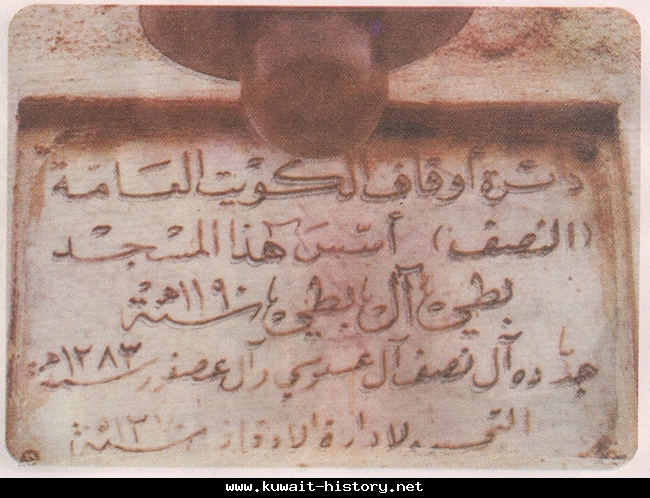 دائرة أوقاف الكويت العامة
(النصف) أسس هذا المسجد
بطي آل بطي سنة ١١٩٠هـ
جدده آل نصف آل عسوسي وآل عصفور سنة ١٢٨٣هـ
لادارة الاوقاف سنة
www.kuwait-history.net